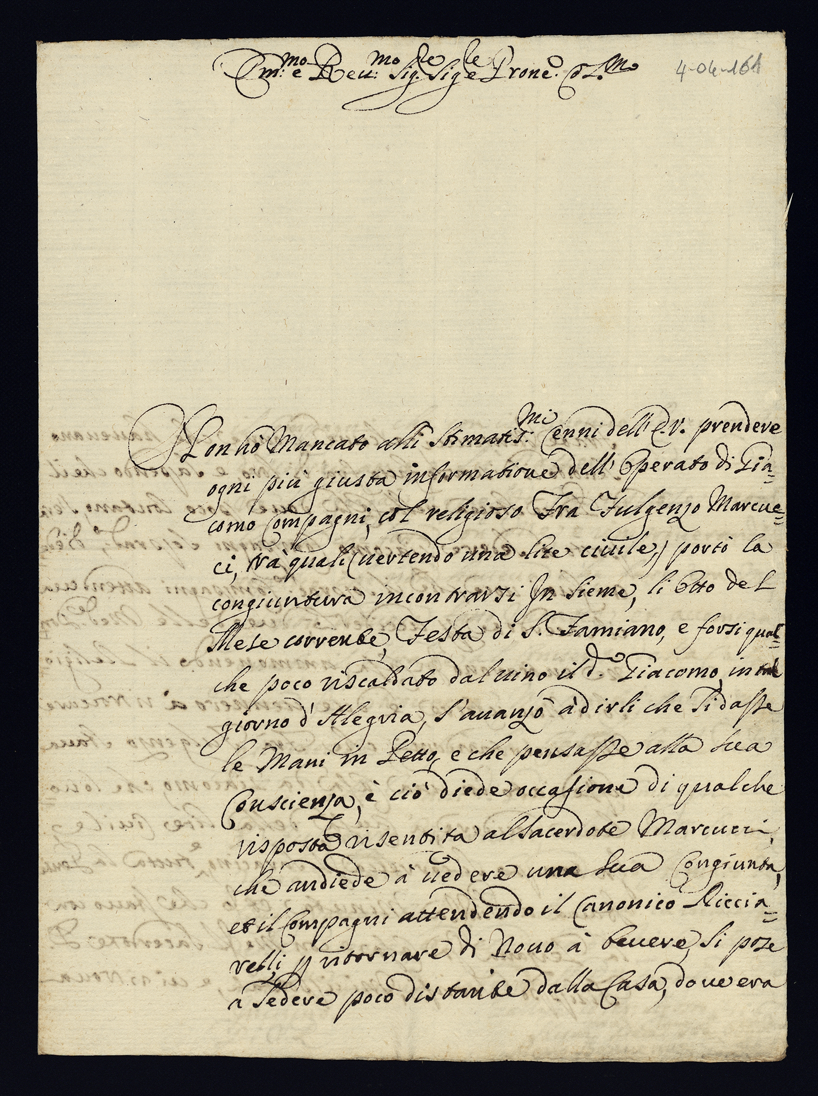 Ill.mo e Rev.mo Sig.re Sig.re e Prone. Col.mo
4-04-161
Non hò Mancato alli Stimatis.mi Cenni dell'E.V. prendere
ogni più giusta informatione dell'Operato di Gia-
como Compagni, col religioso Fra Fulgenzo Marcuc-
ci, trà quali (vertendo una lite civile,) portò la
congiuntura incontrarsi In sieme, li Otto del
Mese corrente, Festa di S. Famiano, e forsi qual-
che poco riscaldato dal vino il d.o Giacomo, in tal
giorno d'Alegria, s'avanzò à dirli che si dasse
le Mani in Petto, e che pensasse alla sua
Conscienza, è ciò diede occasione di qualche
risposta risentita al sacerdote Marcucci,
che andiede à vedere una sua Congiunta,
et il Compagni attendendo il Canonico Riccia-
relli, p ritornare di Novo à bevere, si pose
a sedere poco distante dalla Casa, dove era